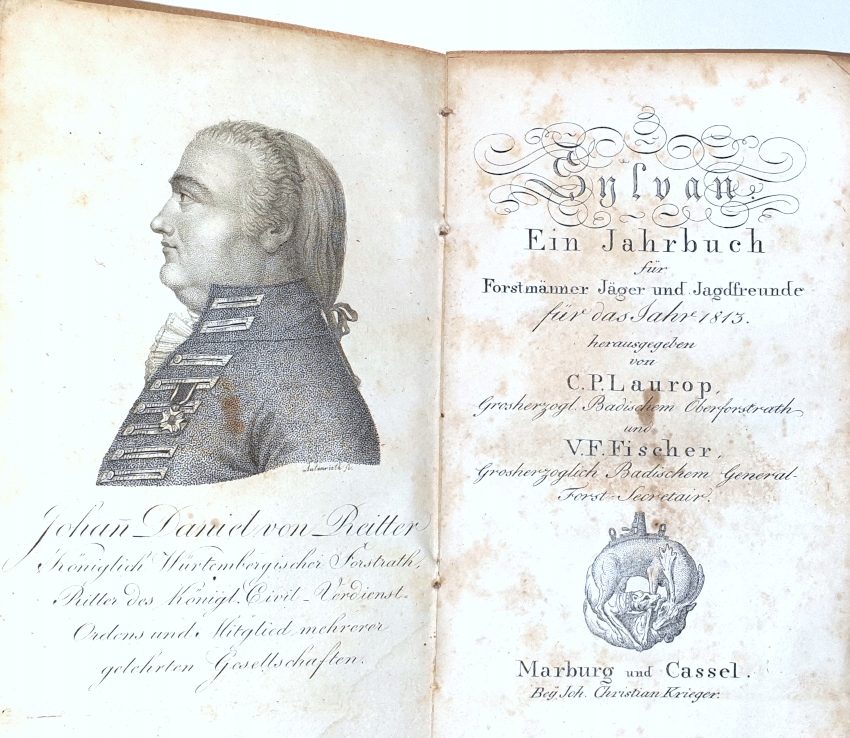 Autenrieth sc.
Johan̄ Daniel von Reitter
Königlich Würtembergischer Forstrath,
Ritter des Königl. Civil-Verdienst-
Ordens und Mitglied mehrerer
gelehrten Gesellschaften.
Sylvan.
Ein Jahrbuch
für
Forstmänner Jäger und Jagdfreunde
für das Jahr 1813.
herausgegeben
von
C.P. Laurop,
Grosherzogl. Badischem Oberforstrath
und
V.F. Fischer,
Grosherzoglich Badischem General-
Forst-Secretair.
Marburg und Cassel.
Beÿ Joh. Christian Krieger.